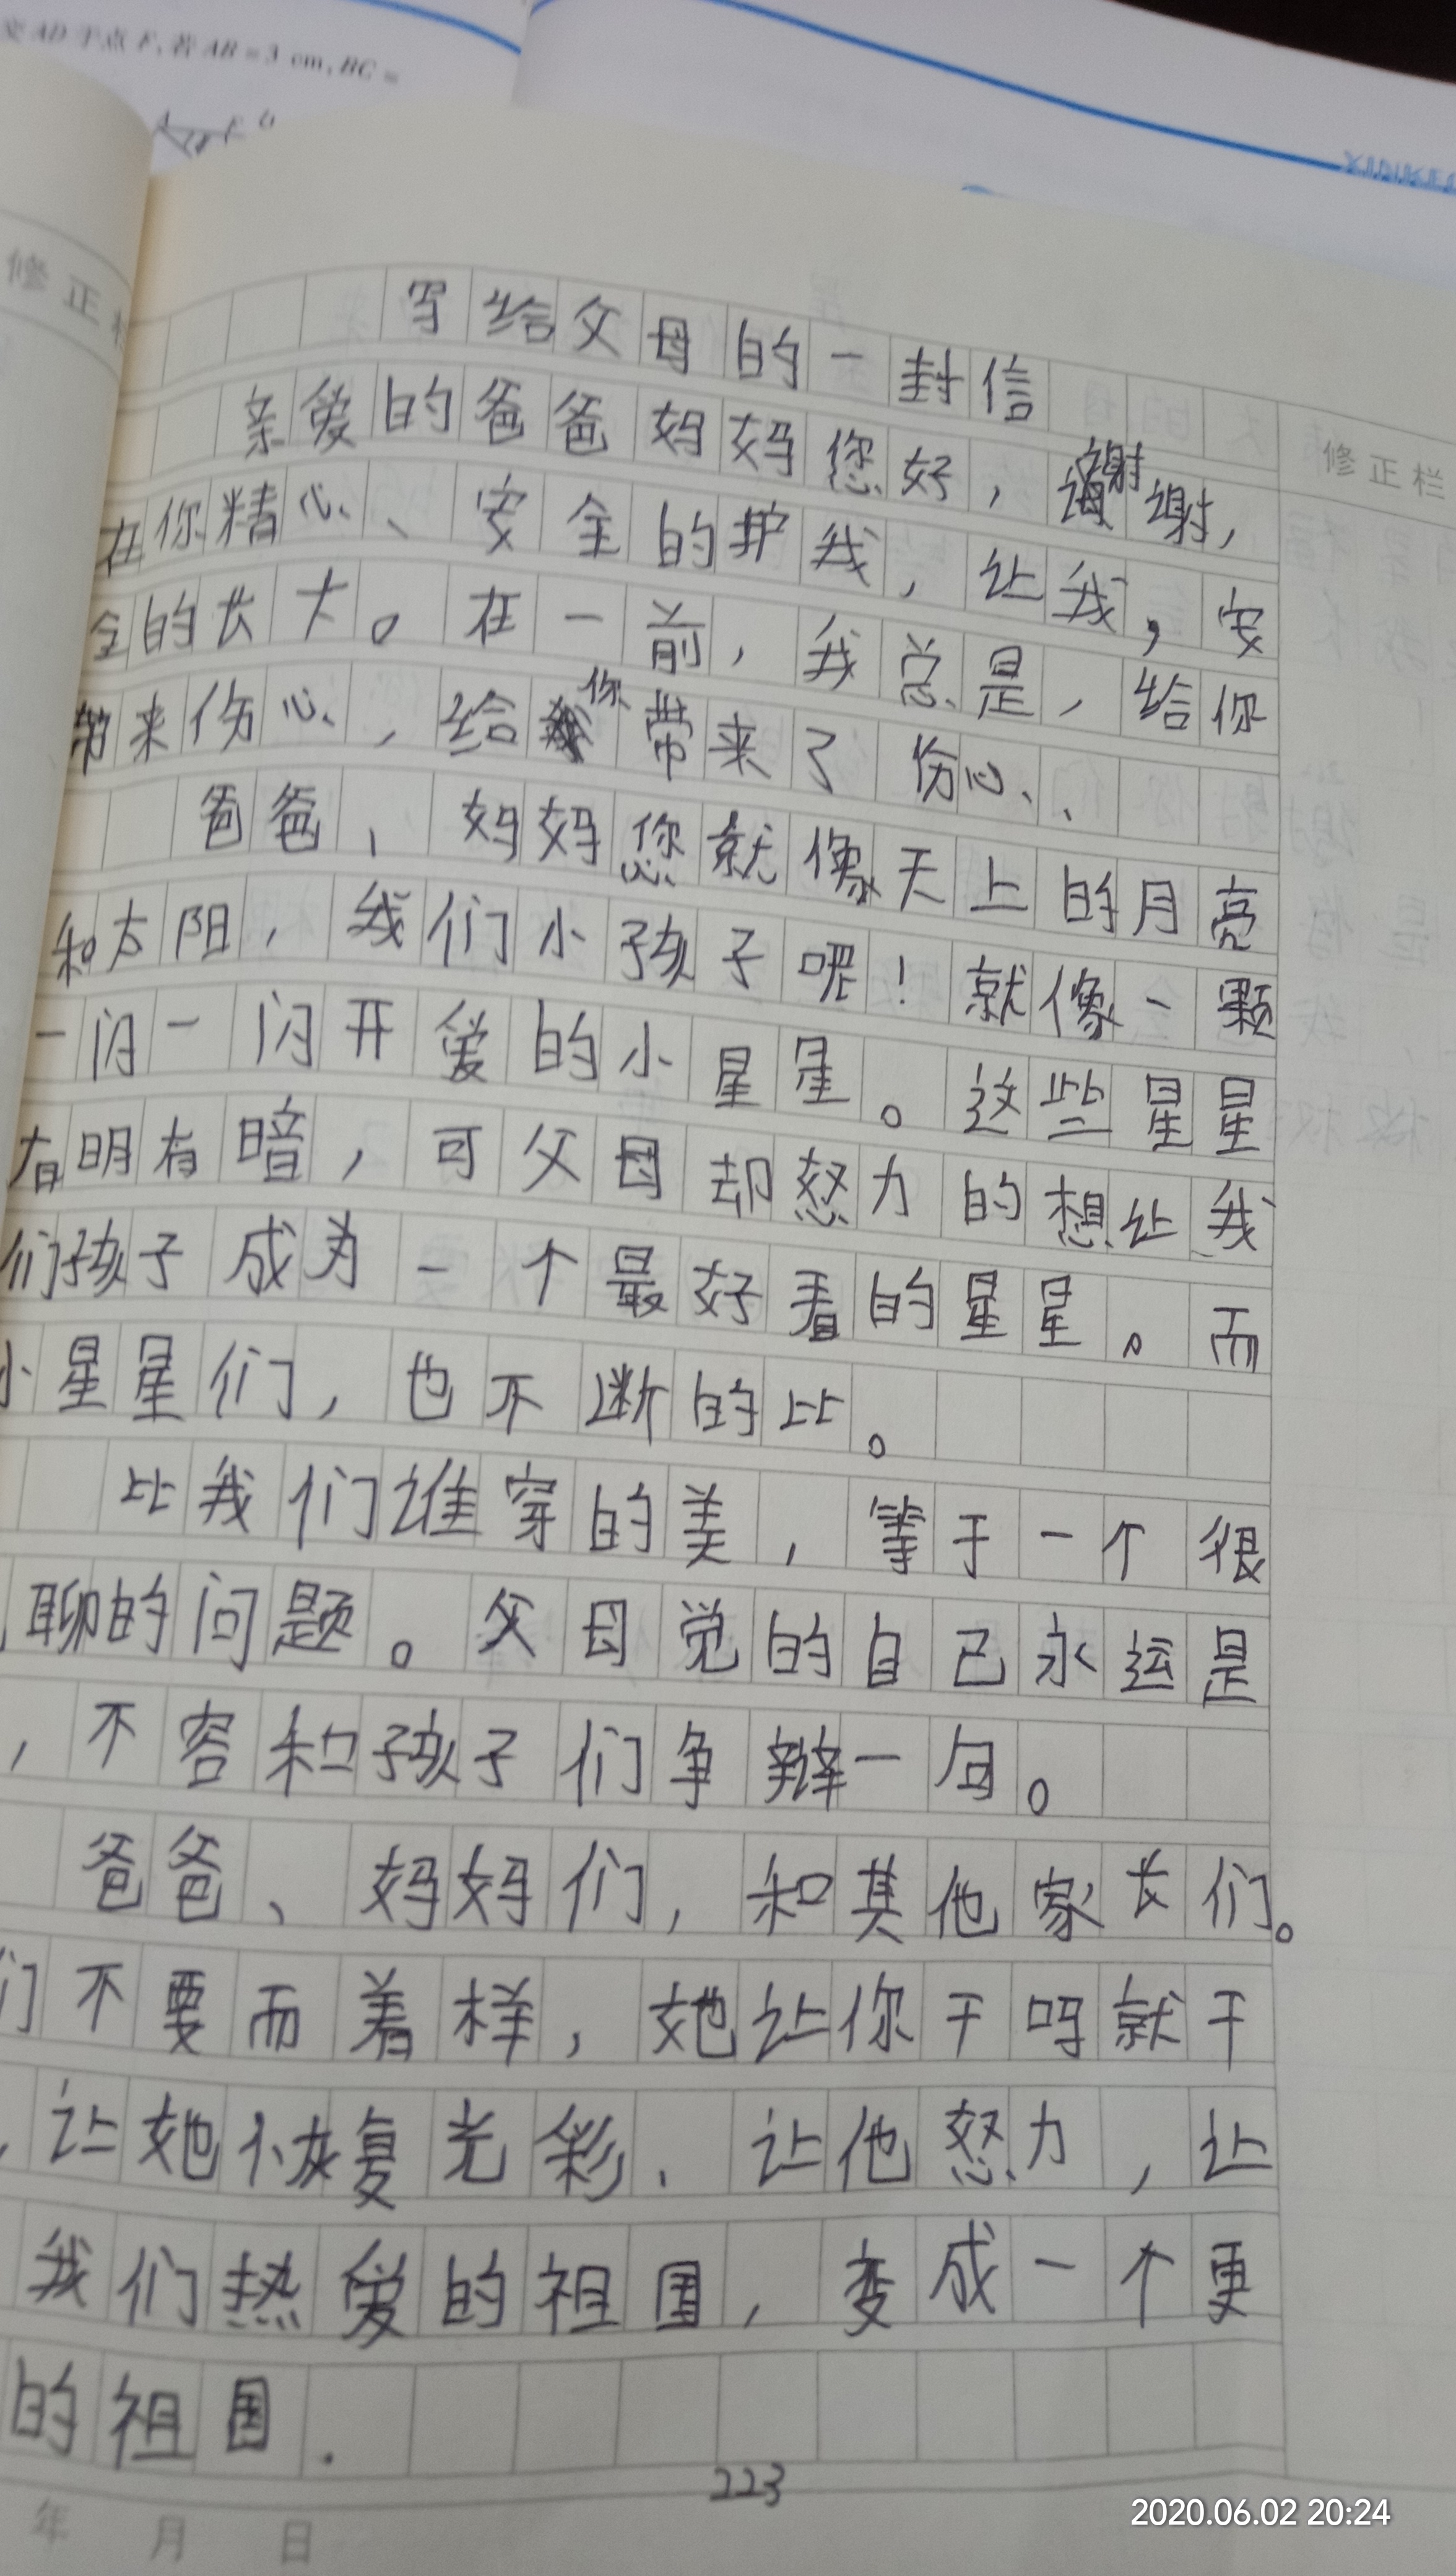 交AD于点F,若AB=3 cm,BC=
修正栏
写给父母的一封信
亲爱的爸爸妈妈您好，谢谢，
修正栏
在你精心、安全的护我，让我，安
全的长大。在一前，我总是，给你
带来伤心，给你带来了伤心、
爸爸，妈妈您就像天上的月亮
和太阳，我们小孩子呢！就像一颗
一闪一闪开爱的小星星。这些星星
有明有暗，可父母却努力的想让我
们孩子成为一个最好看的星星。而
小星星们，也不断的比。
比我们谁穿的美，等于一个很
聊的问题。父母觉的自己永远是
，不容和孩子们争辩一句。
爸爸、妈妈们，和其他家长们。
们不要而着样，她让你干吗就干
，让她恢复光彩、让他努力，让
我们热爱的祖国，变成一个更
的祖国.
223
年 月 日
2020.06.02 20:24